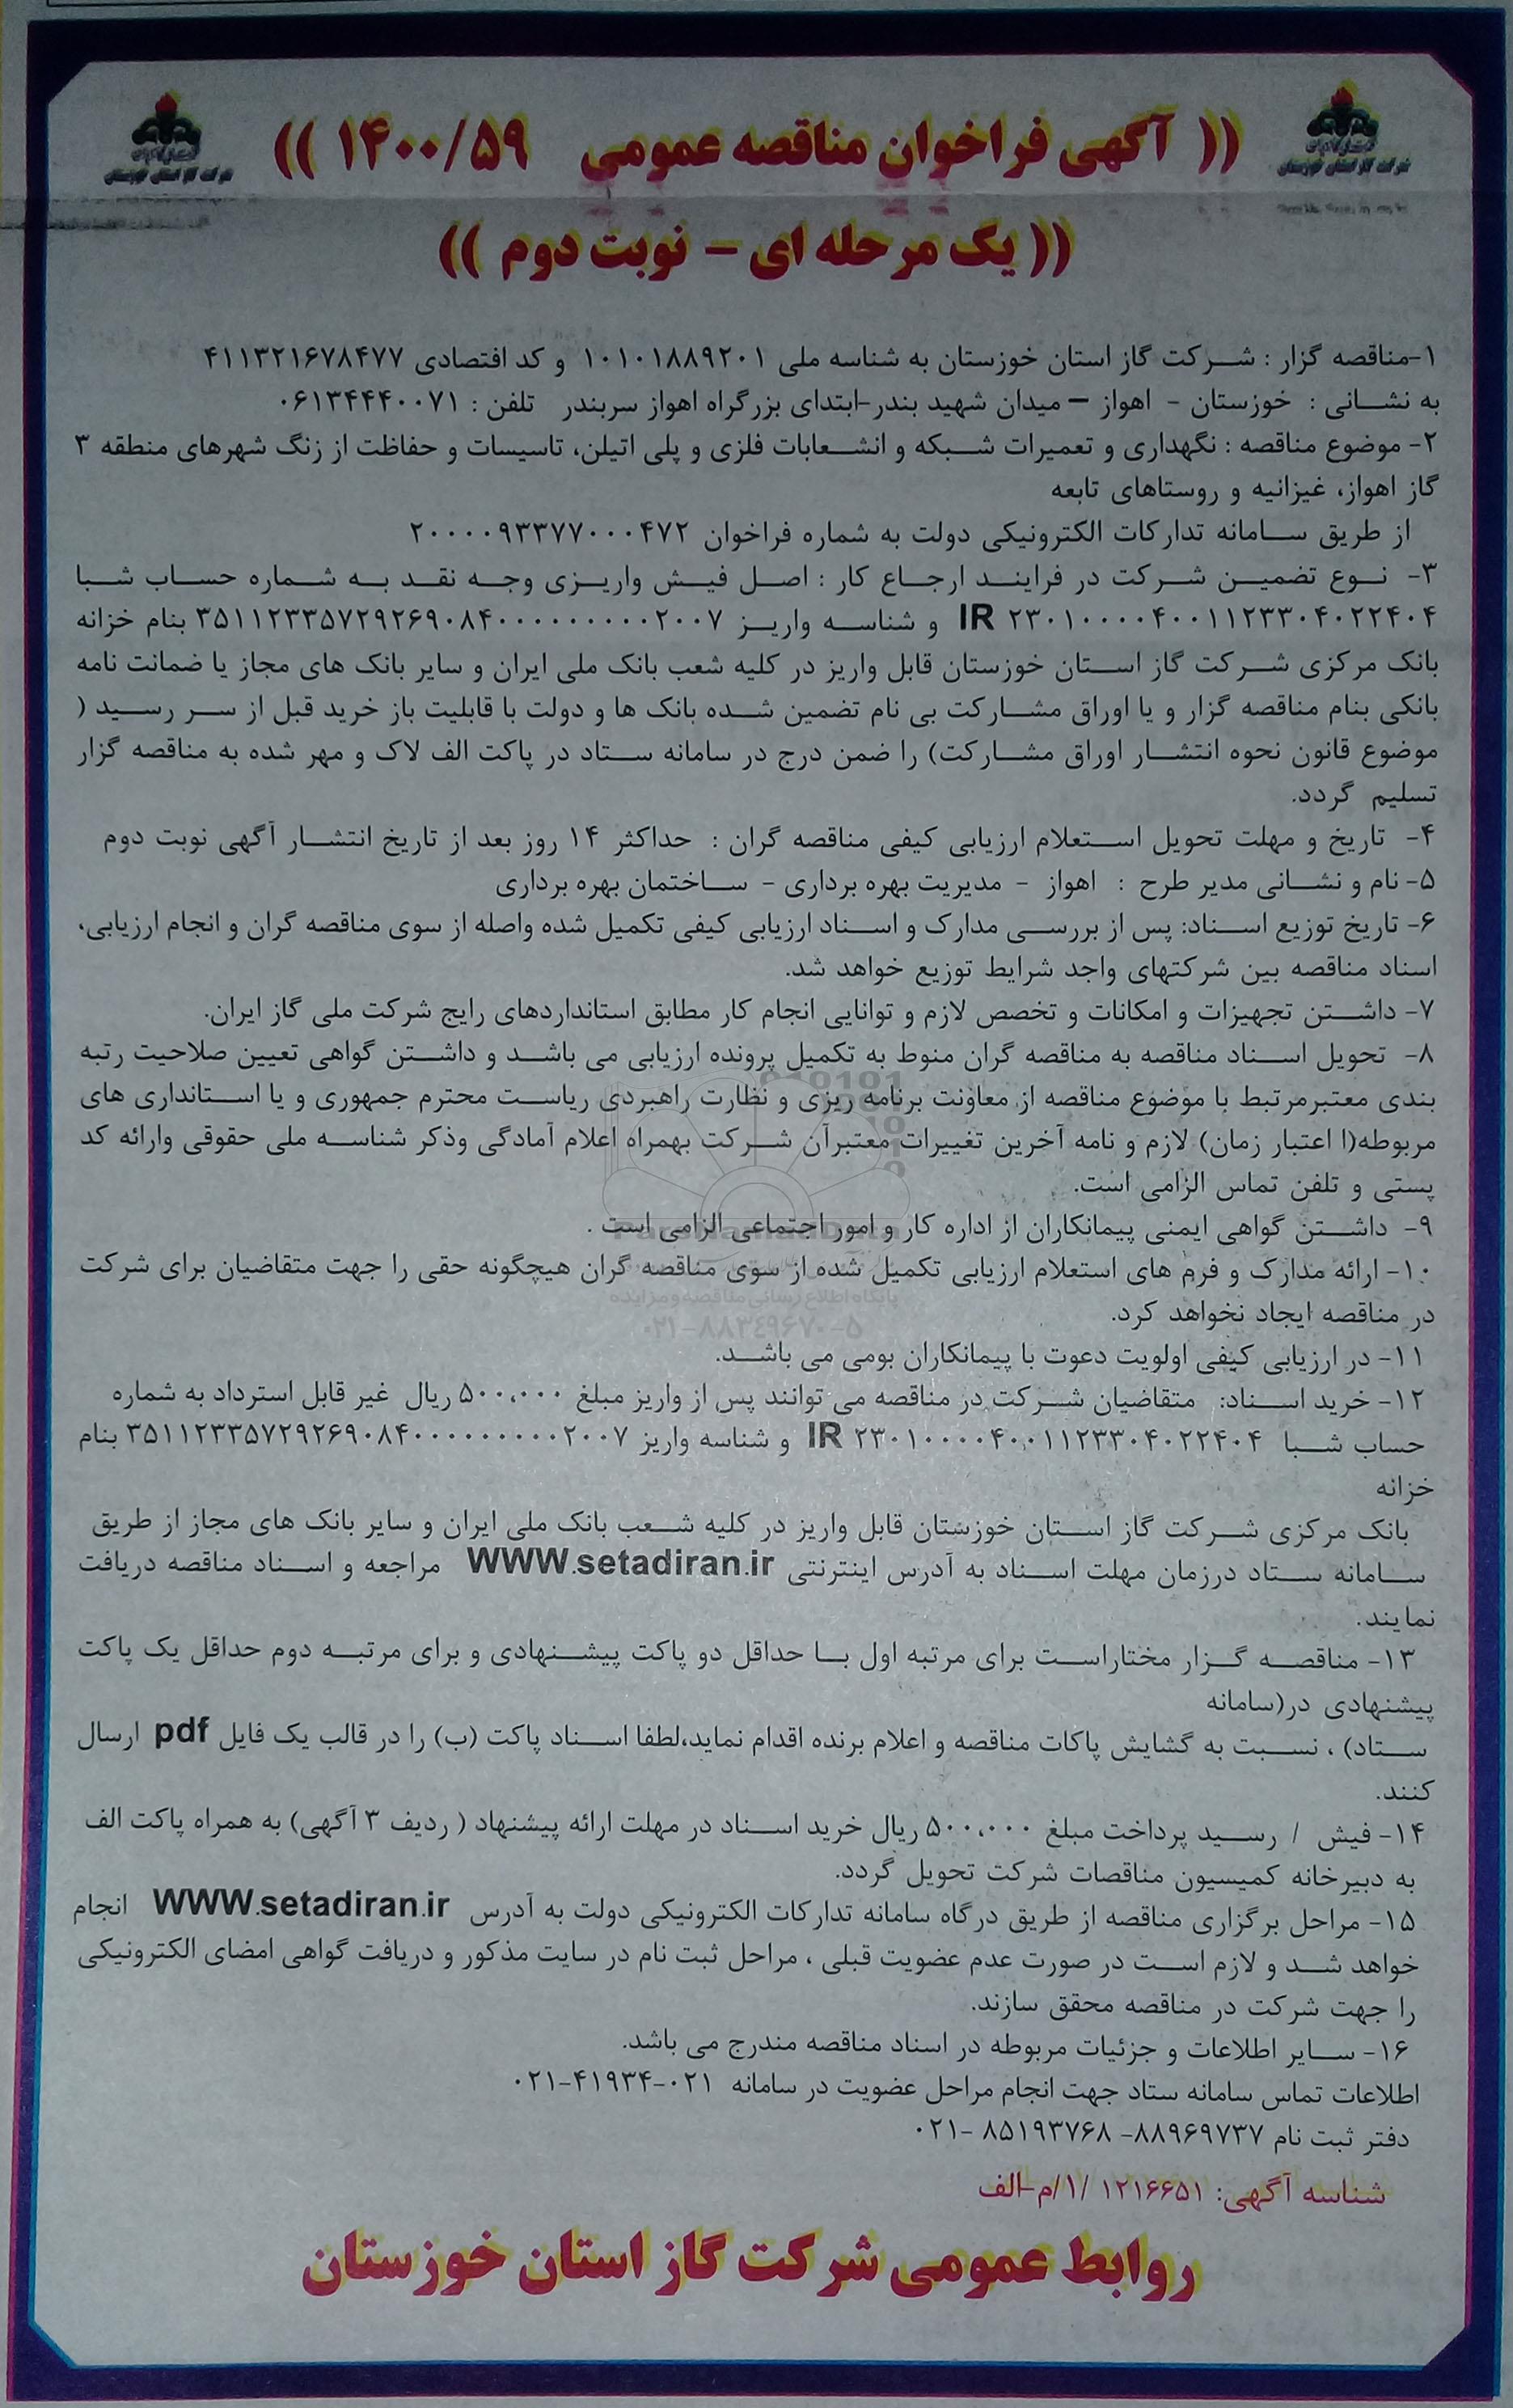 (( آگهی فراخوان مناقصه عمومی ۱۴۰۰/۵۹ ))
(( یک مرحله ای - نوبت دوم ))
شرکت گاز استان خوزستان
شرکت گاز استان خوزستان
۱-مناقصه گزار : شرکت گاز استان خوزستان به شناسه ملی ۱۰۱۰۱۸۸۹۲۰۱ و کد اقتصادی ۴۱۱۳۲۱۶۷۸۴۷۷
به نشانی : خوزستان - اهواز – میدان شهید بندر-ابتدای بزرگراه اهواز سربندر تلفن : ۰۶۱۳۴۴۴۰۰۷۱
۲- موضوع مناقصه : نگهداری و تعمیرات شبکه و انشعابات فلزی و پلی اتیلن، تاسیسات و حفاظت از زنگ شهرهای منطقه ۳
گاز اهواز، غیزانیه و روستاهای تابعه
از طریق سامانه تدارکات الکترونیکی دولت به شماره فراخوان ۲۰۰۰۰۹۳۳۷۷۰۰۰۴۷۲
۳- نوع تضمین شرکت در فرایند ارجاع کار : اصل فیش واریزی وجه نقد به شماره حساب شبا
IR ۲۳۰۱۰۰۰۰۴۰۰۱۱۲۳۳۰۴۰۲۲۴۰۴ و شناسه واریز ۳۵۱۱۲۳۳۵۷۲۹۲۶۹۰۸۴۰۰۰۰۰۰۰۰۰۰۲۰۰۷ بنام خزانه
بانک مرکزی شرکت گاز استان خوزستان قابل واریز در کلیه شعب بانک ملی ایران و سایر بانک های مجاز یا ضمانت نامه
بانکی بنام مناقصه گزار و یا اوراق مشارکت بی نام تضمین شده بانک ها و دولت با قابلیت باز خرید قبل از سر رسید (
موضوع قانون نحوه انتشار اوراق مشارکت) را ضمن درج در سامانه ستاد در پاکت الف لاک و مهر شده به مناقصه گزار
تسلیم گردد.
۴- تاریخ و مهلت تحویل استعلام ارزیابی کیفی مناقصه گران : حداکثر ۱۴ روز بعد از تاریخ انتشار آگهی نوبت دوم
۵- نام و نشانی مدیر طرح : اهواز - مدیریت بهره برداری - ساختمان بهره برداری
۶- تاریخ توزیع اسناد: پس از بررسی مدارک و اسناد ارزیابی کیفی تکمیل شده واصله از سوی مناقصه گران و انجام ارزیابی،
اسناد مناقصه بین شرکتهای واجد شرایط توزیع خواهد شد.
۷- داشتن تجهیزات و امکانات و تخصص لازم و توانایی انجام کار مطابق استانداردهای رایج شرکت ملی گاز ایران.
۸- تحویل اسناد مناقصه به مناقصه گران منوط به تکمیل پرونده ارزیابی می باشد و داشتن گواهی تعیین صلاحیت رتبه
بندی معتبرمرتبط با موضوع مناقصه از معاونت برنامه ریزی و نظارت راهبردی ریاست محترم جمهوری و یا استانداری های
مربوطه(ا اعتبار زمان) لازم و نامه آخرین تغییرات معتبرآن شرکت بهمراه اعلام آمادگی وذکر شناسه ملی حقوقی وارائه کد
پستی و تلفن تماس الزامی است.
۹- داشتن گواهی ایمنی پیمانکاران از اداره کار و امور اجتماعی الزامی است .
۱۰- ارائه مدارک و فرم های استعلام ارزیابی تکمیل شده از سوی مناقصه گران هیچگونه حقی را جهت متقاضیان برای شرکت
در مناقصه ایجاد نخواهد کرد.
پایگاه اطلاع رسانی مناقصه و مزایده
۰۲۱-۸۸۳۴۹۶۷۰-۵
۱۱- در ارزیابی کیفی اولویت دعوت با پیمانکاران بومی می باشد.
۱۲- خرید اسناد: متقاضیان شرکت در مناقصه می توانند پس از واریز مبلغ ۵۰۰،۰۰۰ ریال غیر قابل استرداد به شماره
حساب شبا IR ۲۳۰۱۰۰۰۰۴۰۰۱۱۲۳۳۰۴۰۲۲۴۰۴ و شناسه واریز ۳۵۱۱۲۳۳۵۷۲۹۲۶۹۰۸۴۰۰۰۰۰۰۰۰۰۰۲۰۰۷ بنام
خزانه
بانک مرکزی شرکت گاز استان خوزستان قابل واریز در کلیه شعب بانک ملی ایران و سایر بانک های مجاز از طریق
سامانه ستاد درزمان مهلت اسناد به آدرس اینترنتی WWW.setadiran.ir مراجعه و اسناد مناقصه دریافت
نمایند.
۱۳- مناقصه گزار مختاراست برای مرتبه اول با حداقل دو پاکت پیشنهادی و برای مرتبه دوم حداقل یک پاکت
پیشنهادی در(سامانه
ستاد) ، نسبت به گشایش پاکات مناقصه و اعلام برنده اقدام نماید،لطفا اسناد پاکت (ب) را در قالب یک فایل pdf ارسال
کنند.
۱۴- فیش / رسید پرداخت مبلغ ۵۰۰،۰۰۰ ریال خرید اسناد در مهلت ارائه پیشنهاد ( ردیف ۳ آگهی) به همراه پاکت الف
به دبیرخانه کمیسیون مناقصات شرکت تحویل گردد.
۱۵- مراحل برگزاری مناقصه از طریق درگاه سامانه تدارکات الکترونیکی دولت به آدرس WWW.setadiran.ir انجام
خواهد شد و لازم است در صورت عدم عضویت قبلی ، مراحل ثبت نام در سایت مذکور و دریافت گواهی امضای الکترونیکی
را جهت شرکت در مناقصه محقق سازند.
۱۶- سایر اطلاعات و جزئیات مربوطه در اسناد مناقصه مندرج می باشد.
اطلاعات تماس سامانه ستاد جهت انجام مراحل عضویت در سامانه ۰۲۱-۴۱۹۳۴-۰۲۱
دفتر ثبت نام ۸۸۹۶۹۷۳۷- ۸۵۱۹۳۷۶۸ -۰۲۱
شناسه آگهی: ۱۲۱۶۶۵۱ /۱/م-الف
روابط عمومی شرکت گاز استان خوزستان